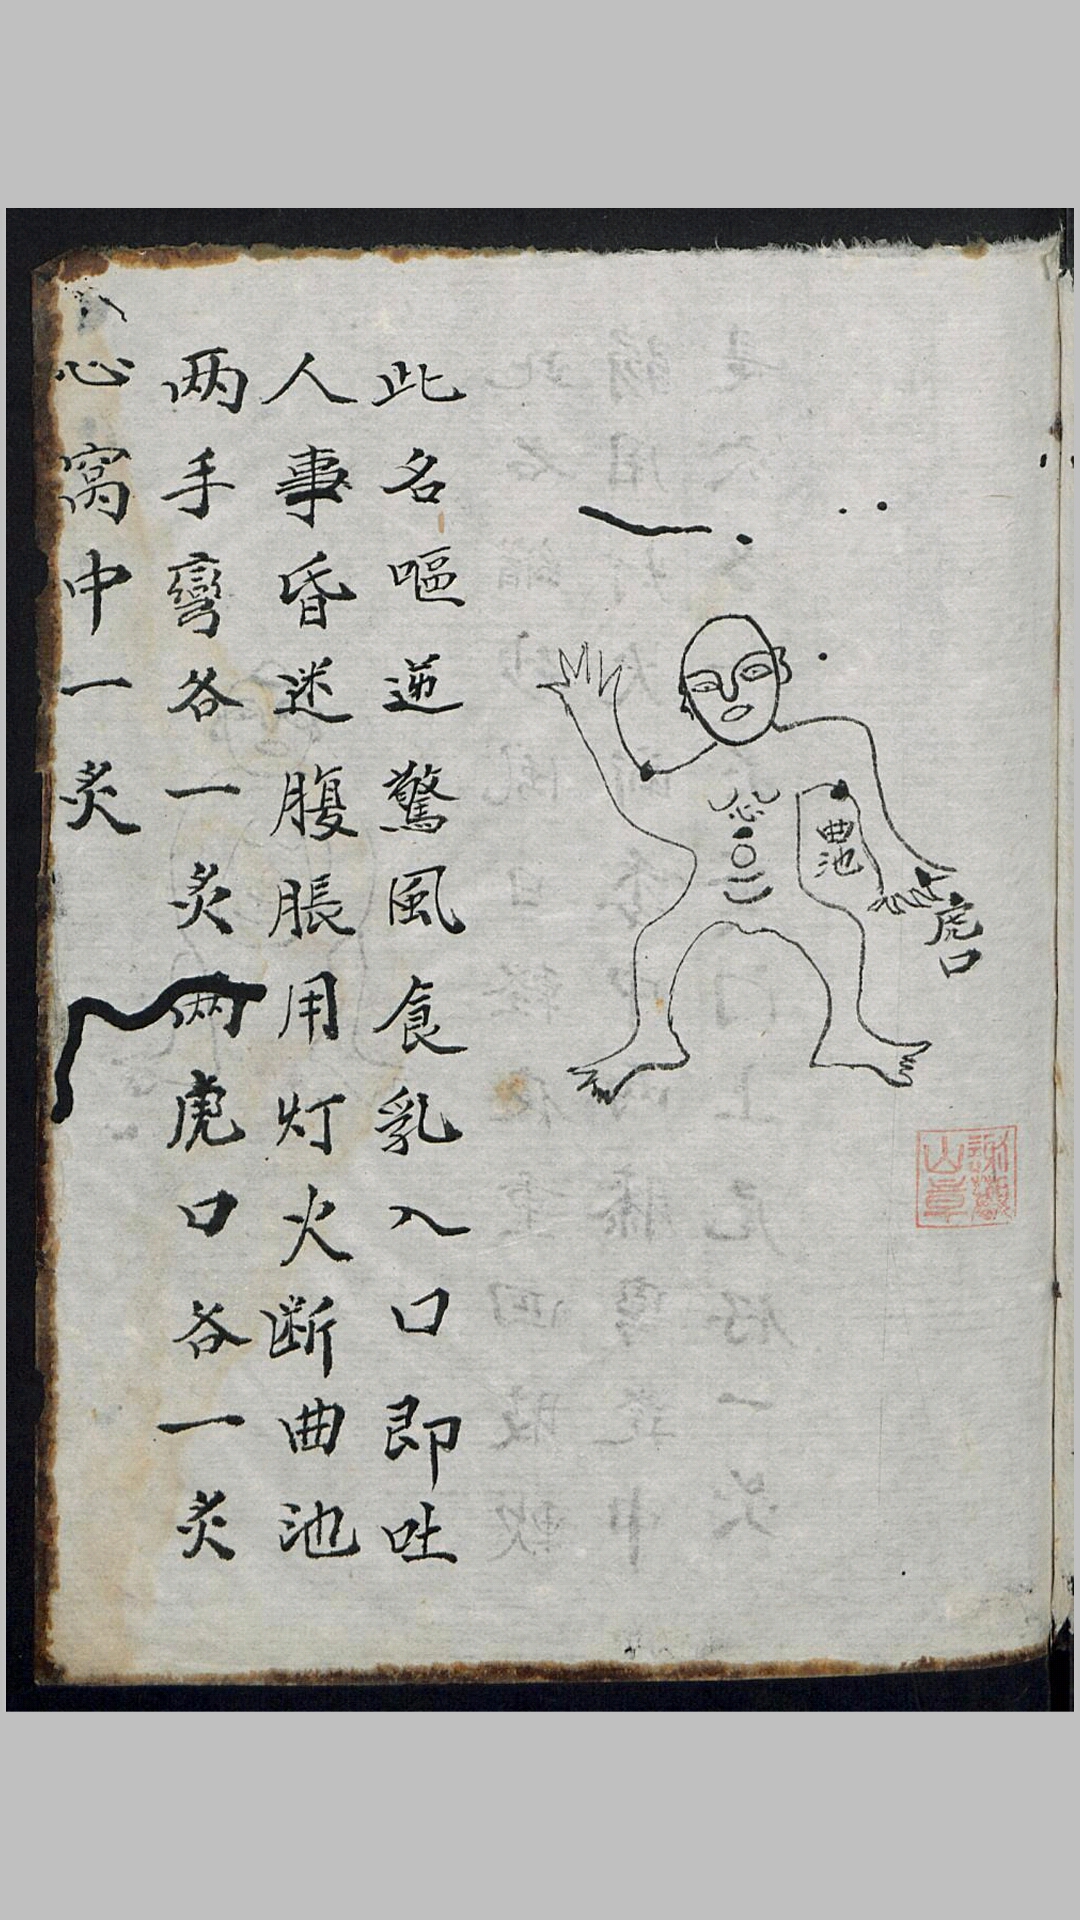 心
曲池
虎口
此名嘔逆驚風食乳入口即吐
人事昏迷腹脹用灯火断曲池
两手彎各一炙两虎口各一炙
心窩中一炙